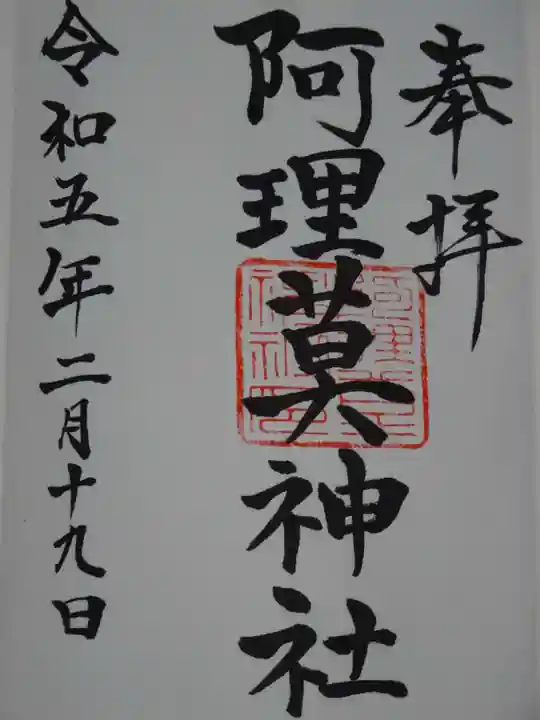 奉拝
阿理莫神社
令和五年二月十九日